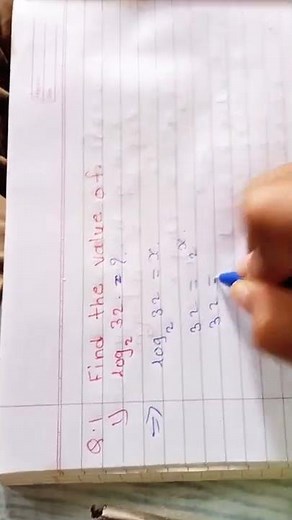 Q.1 Find the value of.
1) log₂ 32 = ?
⇒ log₂ 32 = x
32 = 2ˣ
32 =